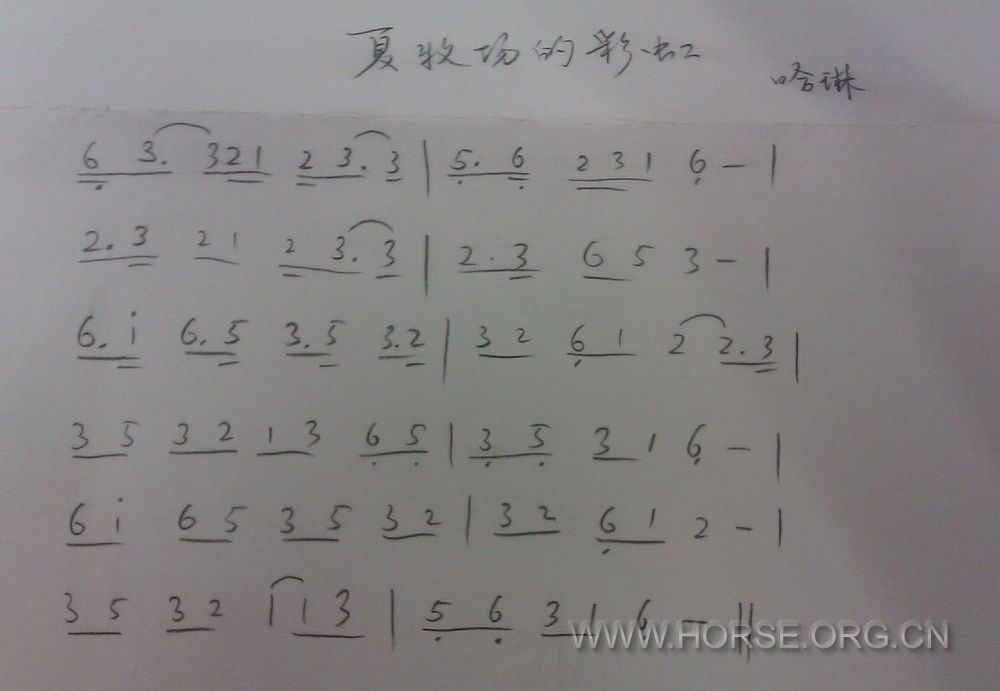 夏牧场的彩虹
哈琳
6 3. 321 2 3. 3 | 5. 6 2 3 1 6 — |
2. 3 2 1 2 3. 3 | 2. 3 6 5 3 — |
6. i 6. 5 3. 5 3. 2 | 3 2 6 1 2 2. 3 |
3 5 3 2 1 3 6 5 | 3 5 3 1 6 — |
6 i 6 5 3 5 3 2 | 3 2 6 1 2 — |
3 5 3 2 1 1 3 | 5 6 3 1 6 — ||
WWW.HORSE.ORG.CN